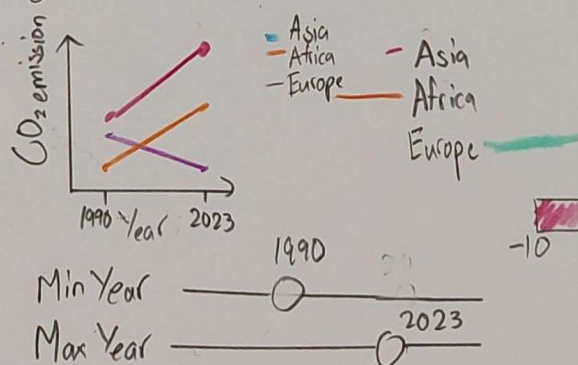 CO₂ emission
1990
Year
2023
Asia
Africa
Europe
Asia
Africa
Europe
-10
1990
Min Year
2023
Max Year